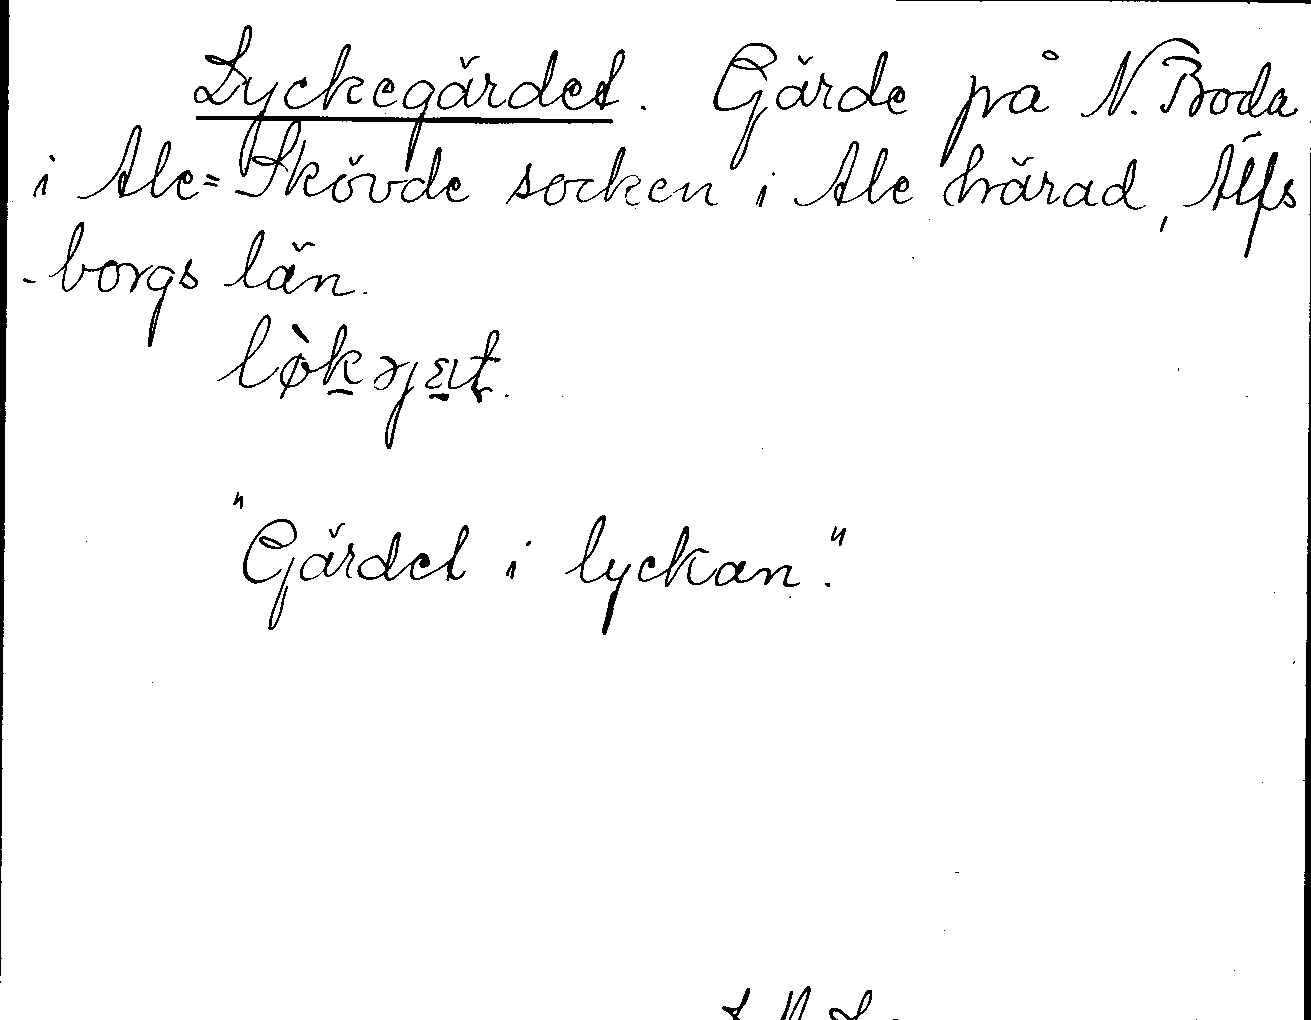 Lyckegärdet. Gärde på N. Broda
i Ale=Skövde socken i Ale härad, Älfs
-borgs län.
"Gärdet i lyckan."